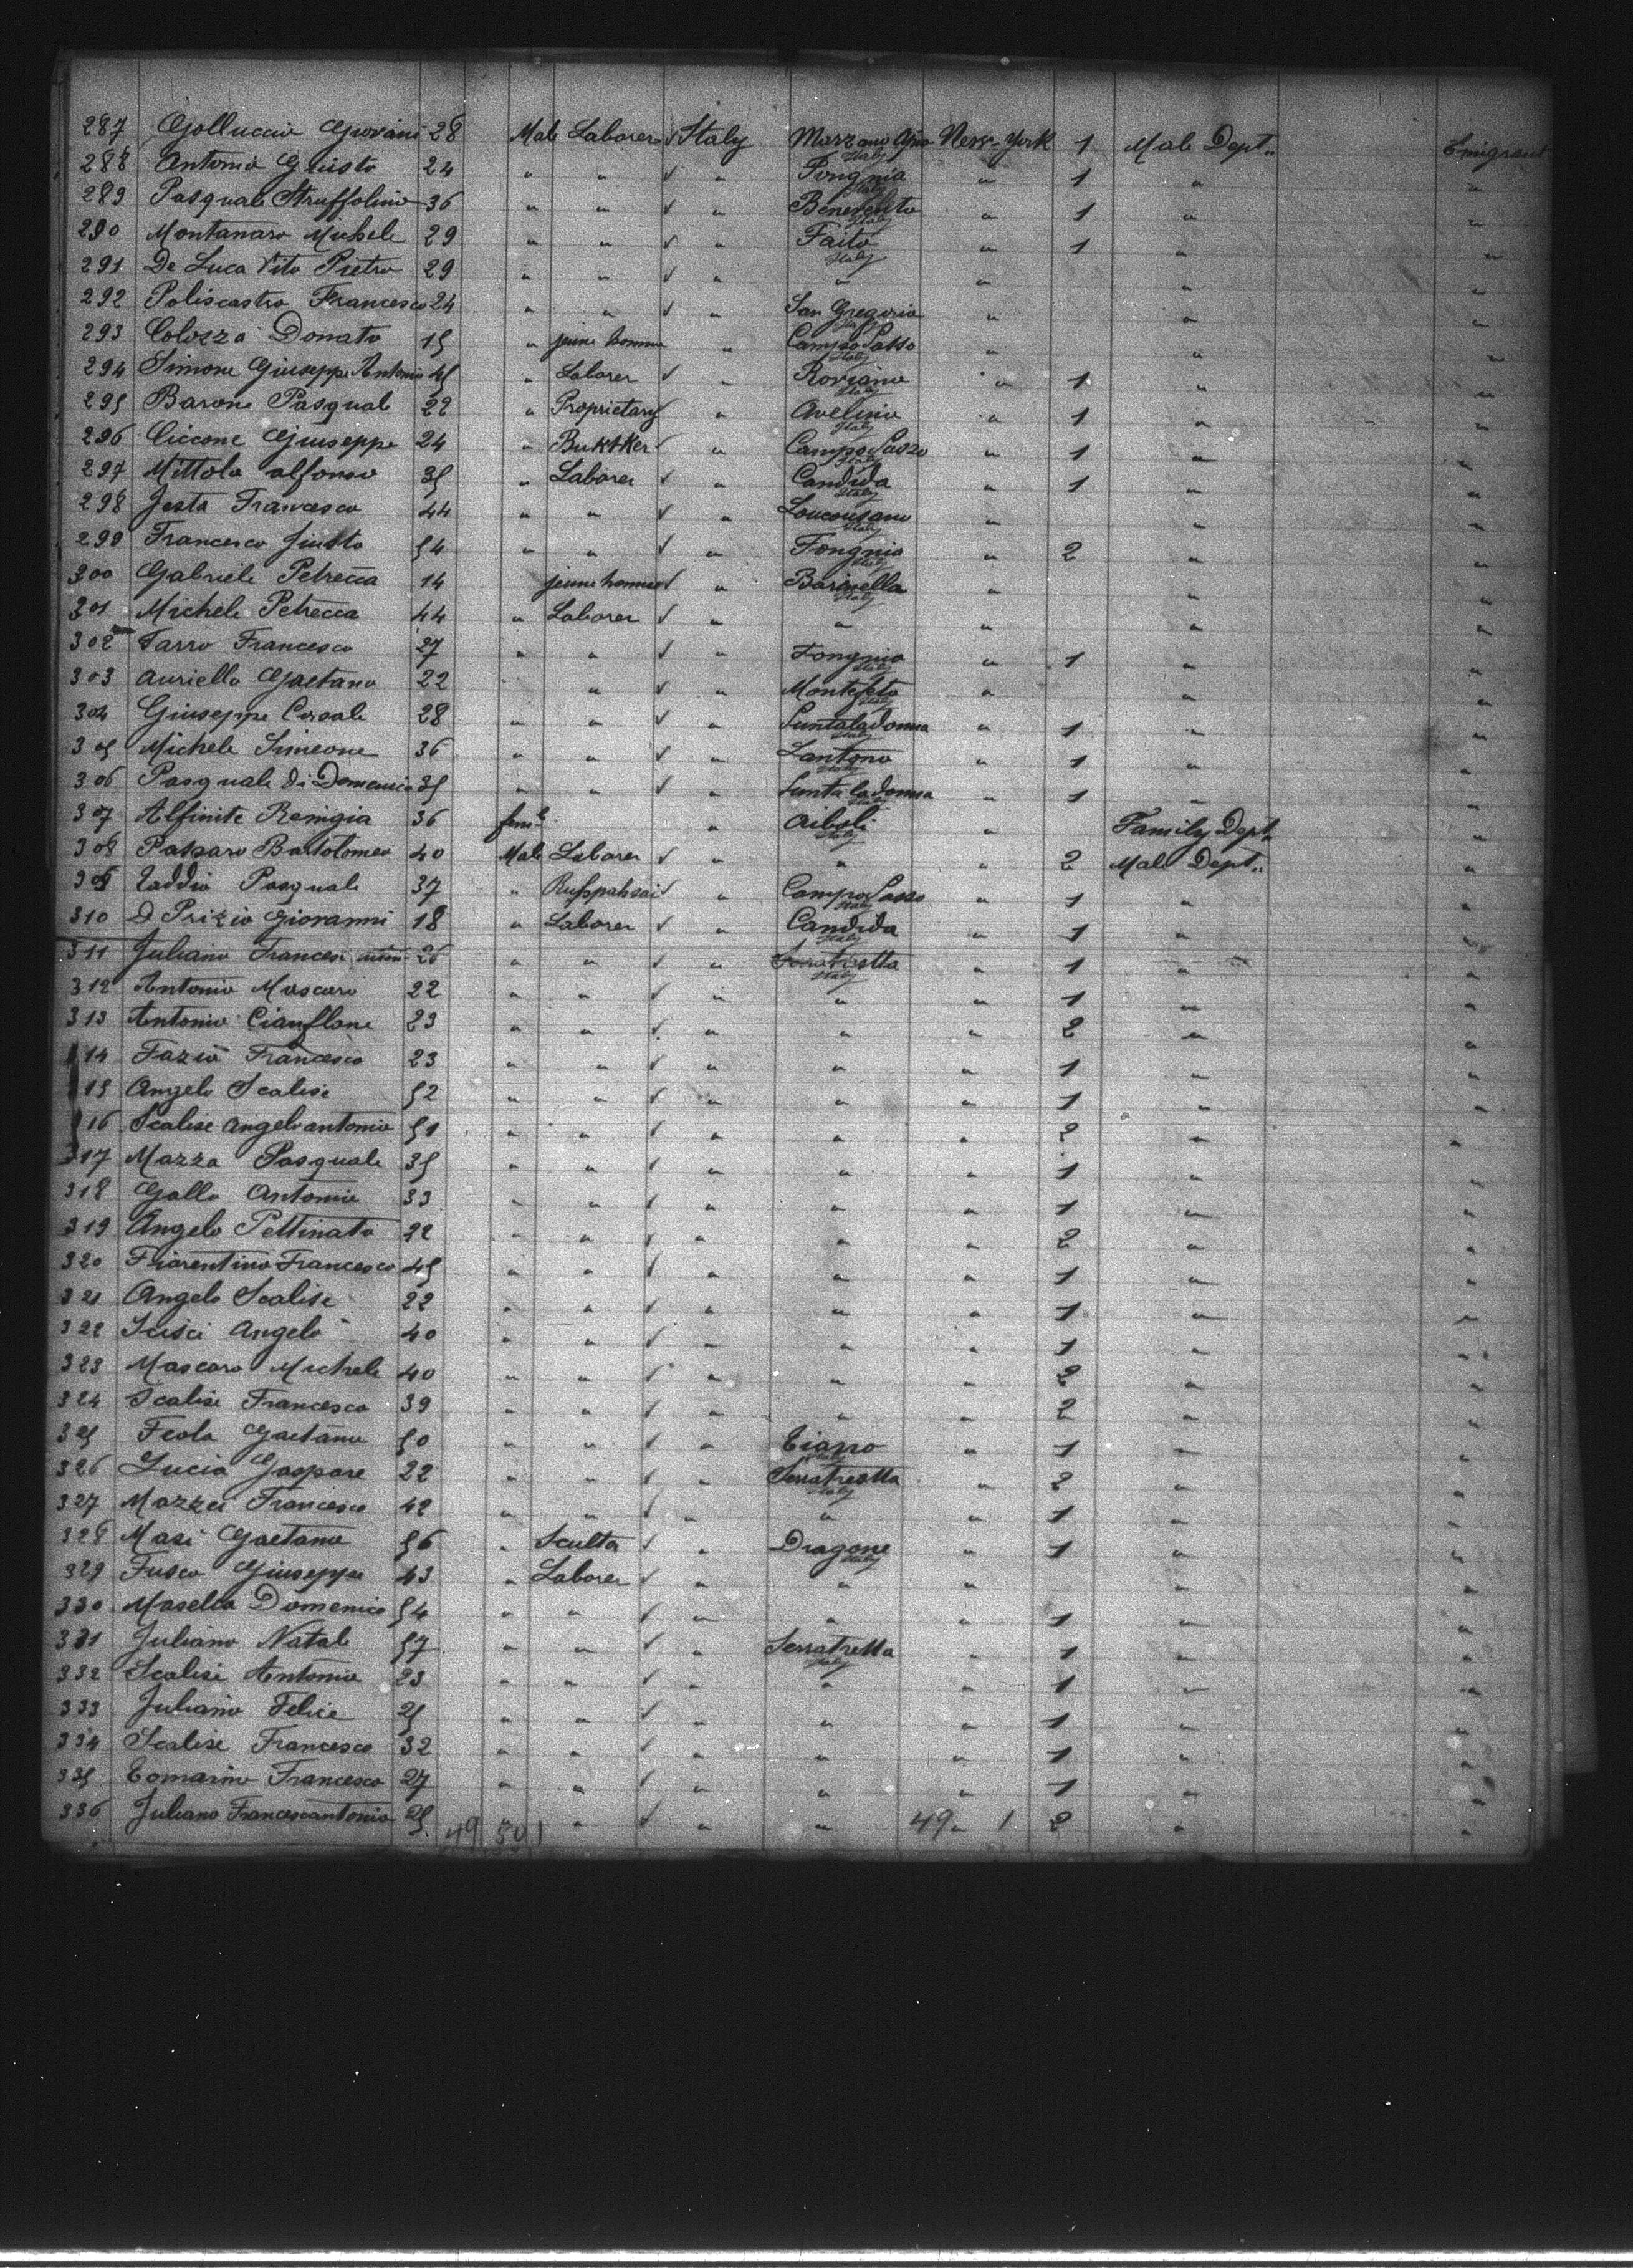 287 Golluccio Giovani 28 Male Laborer √ Italy Marzano Italy New-York 1 Male Dept.. Emigrant
288 Antonio Giusto 24 " " √ " Fongnia Italy " 1 " "
289 Pasquale Struffolino 36 " " √ " Benevento Italy " 1 " "
290 Montanaro Michele 29 " " √ " Faito Italy " 1 " "
291 De Luca Vito Pietro 29 " " √ " " " " "
292 Poliscastro Francesco 24 " " √ " San Gregorio Italy " " "
293 Colozza Donato 15 " jeune homme " Campo Sasso Italy " " "
294 Simone Giuseppe Antonio 45 " Laborer √ " Roviano Italy " 1 " "
295 Barone Pasquale 22 " Proprietary " Avelino Italy " 1 " "
296 Ciccone Giuseppe 24 " √ " Campo Sasso Italy " 1 " "
297 Mittola alfonso 35 " Laborer √ " Candida Italy " 1 " "
298 Jesta Francesco 44 " " √ " Italy " " "
299 Francesco Giusto 54 " " √ " Fongnia Italy " 2 " "
300 Gabriele Petrecca 14 jeune homme √ " Baranella Italy " " "
301 Michele Petrecca 44 " Laborer √ " " " " "
302 Tarro Francesco 27 " " √ " Fongnia Italy " 1 " "
303 Auriello Gaetano 22 " √ " Italy " " "
304 Giuseppe Casale 28 " " √ " Italy " 1 " "
305 Michele Simeone 36 " " √ " Santono Italy " 1 " "
306 Pasquale di Domenico 35 " " √ " Italy " 1 " "
307 Alfinite Remigia 36 feml " Italy " Family Dept. "
308 Passaro Bartolomeo 40 Male Laborer √ " " " 2 Male Dept.. "
309 Taddio Pasquale 37 " √ " Campo Sasso Italy " 1 " "
310 D Prizio Giovanni 18 " Laborer √ " Candida Italy " 1 " "
311 Juliano 26 " " √ " Serratretta Italy " 1 " "
312 Antonio Mascaro 22 " " √ " " " 1 " "
313 Antonio Cianflone 23 " " √ " " " 2 " "
314 Fazio Francesco 23 " " √ " " " 1 " "
315 Angelo Scalise 52 " " √ " " " 1 " "
316 Scalise Angelo antonio 51 " " √ " " " 2 " "
317 Mazza Pasquale 35 " " √ " " " 1 " "
318 Gallo Antonio 33 " " √ " " " 1 " "
319 Angelo Pettinato 22 " " √ " " " 2 " "
320 Fiorentino Francesco 45 " " √ " " " 1 " "
321 Angelo Scalise 22 " " √ " " " 1 " "
322 Scisci Angelo 40 " " √ " " " 1 " "
323 Mascaro Michele 40 " " √ " " " 2 " "
324 Scalise Francesco 39 " " √ " " " 2 " "
325 Feola Gaetano 50 " " √ " Italy " 1 " "
326 Lucia Gaspare 22 " " √ " Serratretta Italy " 2 " "
327 Mazzei Francesco 42 " " √ " " " 1 " "
328 Masi Gaetano 56 " Sculta √ " Dragone Italy " 1 " "
329 Fusco Giuseppe 43 " Laborer √ " " " " "
330 Masella Domenico 54 " " √ " " " 1 " "
331 Juliano Natale 57 " " √ " Serratretta Italy " 1 " "
332 Scalise Antonio 23 " " √ " " " 1 " "
333 Juliano Felice 25 " " √ " " " 1 " "
334 Scalise Francesco 32 " " √ " " " 1 " "
335 Tomaino Francesco 27 " " √ " " " 1 " "
336 Juliano Francescantonio 25 " " √ " " 49 " 1 2 " "
49